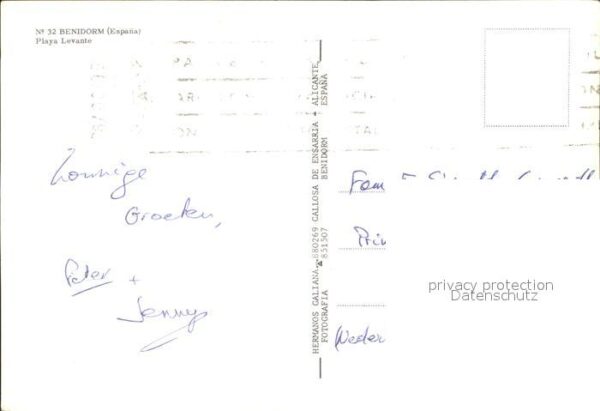 Nº 32 BENIDORM (España)
Playa Levante
Zonnige
Groeten,
Peter +
Jenny
HERMANOS GALIANA - 880269 CALLOSA DE ENSARRIA - ALICANTE
FOTOGRAFIA 851507 BENIDORM ESPAÑA
Fam
Prin
privacy protection
Datenschutz
Neder